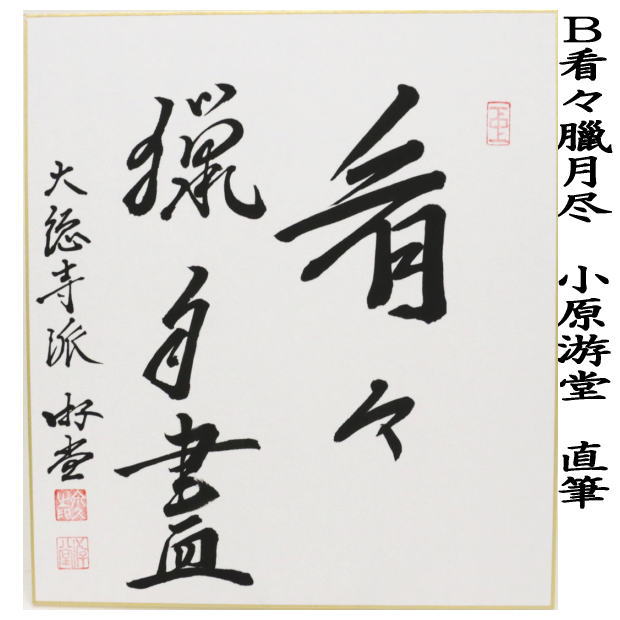 B看々臘月尽 小原游堂 直筆
看々
臘月盡
大徳寺派 游堂